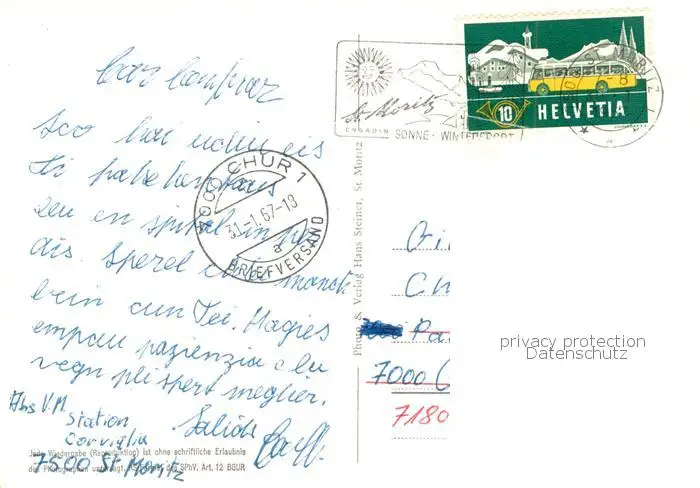 Car compar
Sco hai udiu eis
Ti
zeu en spital in pèr
dis. Sperel che monck
bein cun Tei. Hagies
empau pazienzia e lu
vegn pli spert meglier.
Salids
Abs V.M.
Station
Corviglia
7500 St. Moritz
Jede Wiedergabe (Reproduktion) ist ohne schriftliche Erlaubnis
des Photographen untersagt. SPhV. Art. 12 BGUR
Photo & Verlag Hans Steiner, St. Moritz
St. Moritz
ENGADIN SONNE · WINTERSPORT
10 HELVETIA
ST. MORITZ 1
7000 CHUR 1
31-1.67-10
a
BRIEFVERSAND
Gi
Ch
Pa
7000 C
7180
privacy protection
Datenschutz